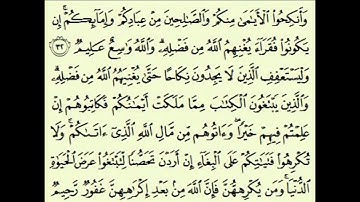 وَأَنكِحُوا۟ ٱلْأَيَـٰمَىٰ مِنكُمْ وَٱلصَّـٰلِحِينَ مِنْ عِبَادِكُمْ وَإِمَآئِكُمْ ۚ إِن
يَكُونُوا۟ فُقَرَآءَ يُغْنِهِمُ ٱللَّهُ مِن فَضْلِهِۦ ۗ وَٱللَّهُ وَٰسِعٌ عَلِيمٌ ٣٢
وَلْيَسْتَعْفِفِ ٱلَّذِينَ لَا يَجِدُونَ نِكَاحًا حَتَّىٰ يُغْنِيَهُمُ ٱللَّهُ مِن فَضْلِهِۦ ۗ
وَٱلَّذِينَ يَبْتَغُونَ ٱلْكِتَـٰبَ مِمَّا مَلَكَتْ أَيْمَـٰنُكُمْ فَكَاتِبُوهُمْ إِنْ
عَلِمْتُمْ فِيهِمْ خَيْرًا ۖ وَءَاتُوهُم مِّن مَّالِ ٱللَّهِ ٱلَّذِىٓ ءَاتَىٰكُمْ ۚ وَلَا
تُكْرِهُوا۟ فَتَيَـٰتِكُمْ عَلَى ٱلْبِغَآءِ إِنْ أَرَدْنَ تَحَصُّنًا لِّتَبْتَغُوا۟ عَرَضَ ٱلْحَيَوٰةِ
ٱلدُّنْيَا ۚ وَمَن يُكْرِههُّنَّ فَإِنَّ ٱللَّهَ مِنۢ بَعْدِ إِكْرَٰهِهِنَّ غَفُورٌ رَّحِيمٌ